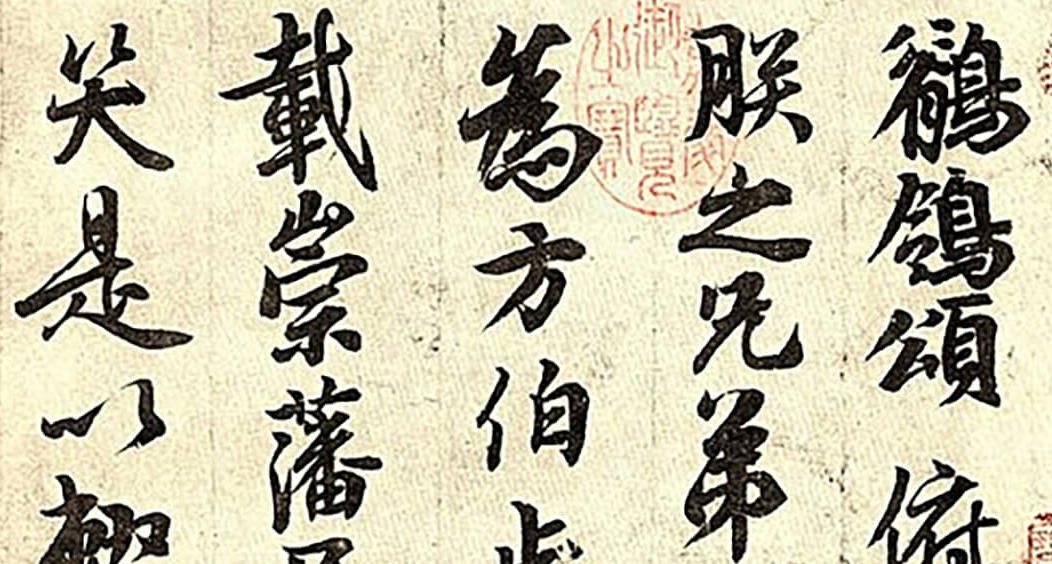 鶺鴒頌 俯
朕之兄弟
為方伯
載崇藩
笑是以
御覽之寶